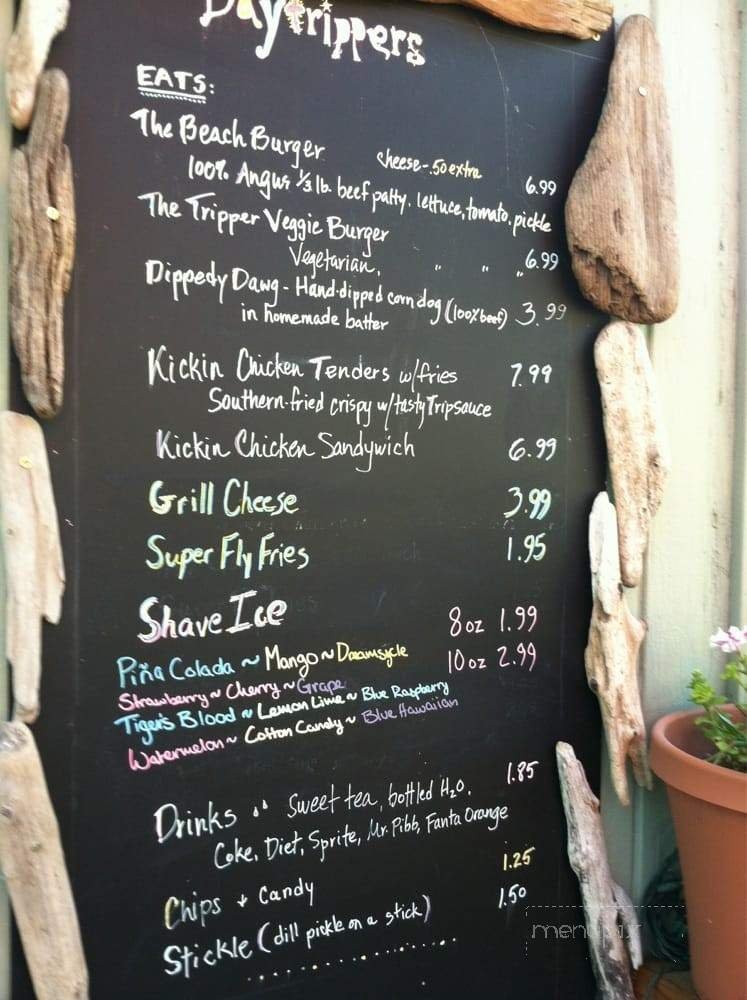 Daytrippers
EATS:
The Beach Burger cheese-.50 extra
100% Angus 1/3 lb. beef patty, lettuce, tomato, pickle 6.99
The Tripper Veggie Burger
Vegetarian, " " " 6.99
Dippedy Dawg - Hand-dipped corn dog (100% beef) 3.99
in homemade batter
Kickin Chicken Tenders w/fries 7.99
Southern-fried crispy w/tasty Tripsauce
Kickin Chicken Sandywich 6.99
Grill Cheese 3.99
Super Fly Fries 1.95
Shave Ice 8 oz 1.99
Piña Colada ~ Mango ~ Dreamsycle 10 oz 2.99
Strawberry ~ Cherry ~ Grape
Tiger's Blood ~ Lemon Lime ~ Blue Raspberry
Watermelon ~ Cotton Candy ~ Blue Hawaiian
Drinks .. Sweet tea, bottled H2O, 1.85
Coke, Diet, Sprite, Mr. Pibb, Fanta Orange
Chips + Candy 1.25
Stickle (dill pickle on a stick) 1.50
menupix